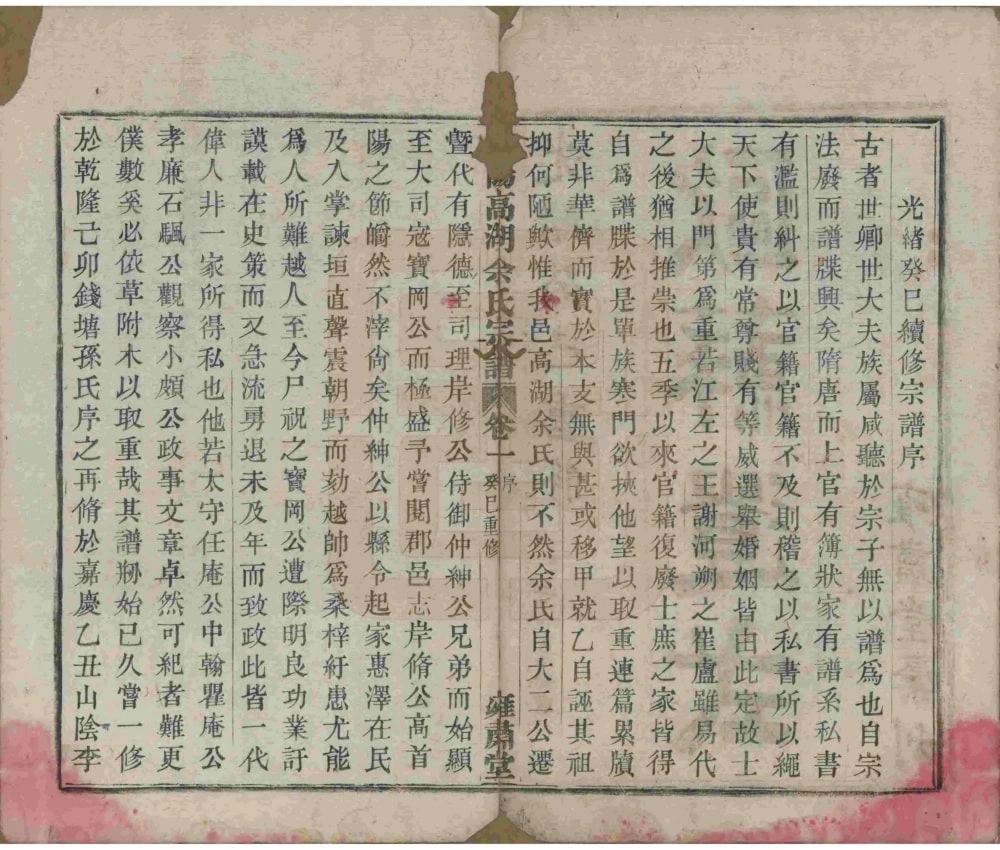 光緒癸巳續修宗譜序
古者世卿世大夫族屬咸聽於宗子無以譜爲也自宗
法廢而譜牒興矣隋唐而上官有簿狀家有譜系私書
有濫則糾之以官籍官籍不及則稽之以私書所以繩
天下使貴有常尊賤有等威選舉婚姻皆由此定故士
大夫以門第爲重若江左之王謝河朔之崔盧雖易代
之後猶相推崇也五季以來官籍復廢士庶之家皆得
自爲譜牒於是單族寒門欲挾他望以取重連篇累牘
莫非華儕而實於本支無與甚或移甲就乙自誣其祖
抑何陋歟惟我邑高湖余氏則不然余氏自大二公遷
陽高湖余氏宗譜 卷一 序 癸巳重修 雍肅堂
暨代有隱德至司理岸修公侍御仲紳公兄弟而始顯
至大司寇寶岡公而極盛予嘗閱郡邑志岸脩公高首
陽之節皭然不滓尙矣仲紳公以縣令起家惠澤在民
及入掌諫垣直聲震朝野而劾越帥爲桑梓紓患尤能
爲人所難越人至今尸祝之寶岡公遭際明良功業訏
謨載在史策而又急流勇退未及年而致政此皆一代
偉人非一家所得私也他若太守任庵公中翰瞿庵公
孝廉石颿公觀察小頗公政事文章卓然可紀者難更
僕數奚必依草附木以取重哉其譜刱始已久嘗一修
於乾隆己卯錢塘孫氏序之再脩於嘉慶乙丑山陰李